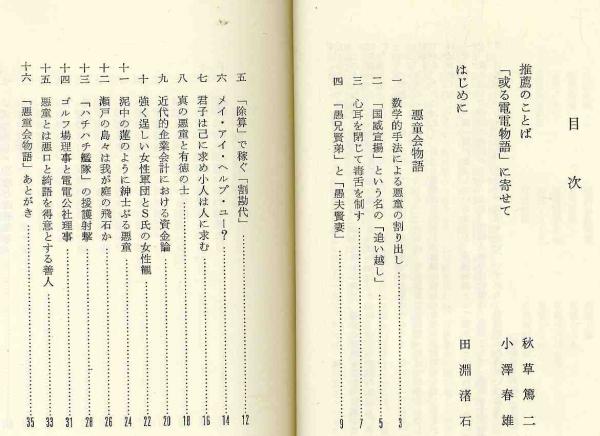 目次
推薦のことば 秋草篤二
「或る電電物語」に寄せて 小澤春雄
はじめに 田淵渚石
悪童会物語
一 数学的手法による悪童の割り出し 3
二 「国威宣揚」という名の「追い越し」 5
三 心耳を閉じて毒舌を制す 7
四 「愚兄賢弟」と「愚夫賢妻」 9
五 「除算」で稼ぐ「割勘代」 12
六 メイ・アイ・ヘルプ・ユー? 14
七 君子は己に求め小人は人に求む 16
八 真の悪童と有徳の士 18
九 近代的企業会計における資金論 20
十 強く逞しい女性軍団とS氏の女性観 22
十一 泥中の蓮のように紳士ぶる悪童 24
十二 瀬戸の島々は我が庭の飛石か 26
十三 「ハチハチ艦隊」の援護射撃 28
十四 ゴルフ場理事と電電公社理事 31
十五 悪童とは悪口と綺語を得意とする善人 33
十六 「悪童会物語」あとがき 35